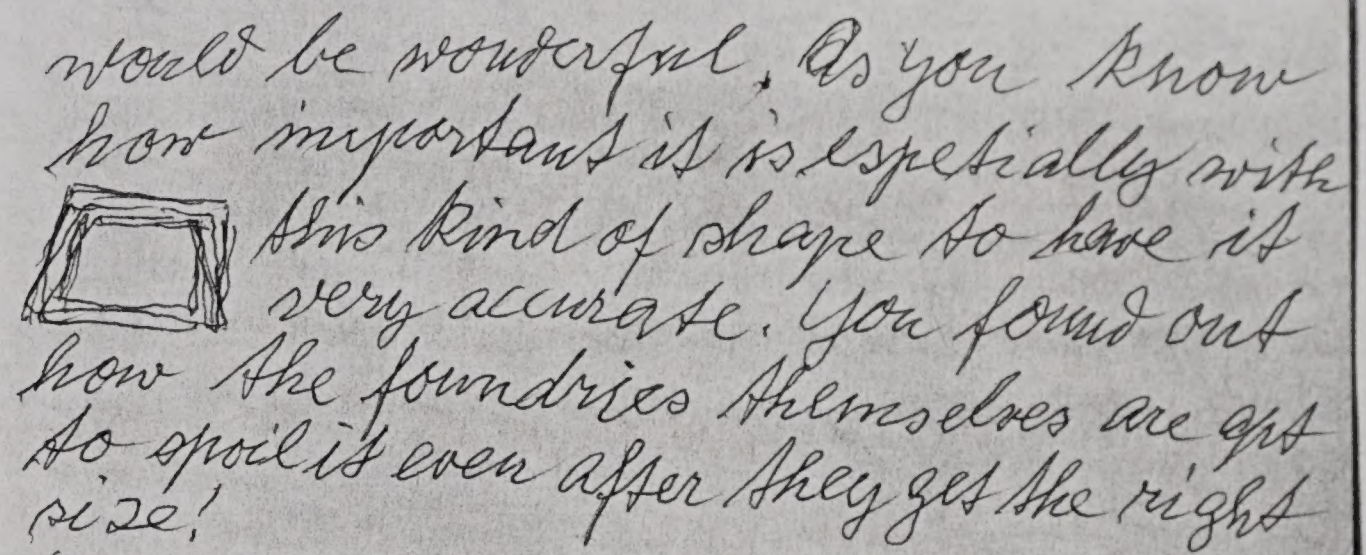 would be wonderful. As you know
how important it is espetially with
this kind of shape to have it
very accurate. You found out
how the foundries themselves are apt
to spoil it even after they get the right
size!